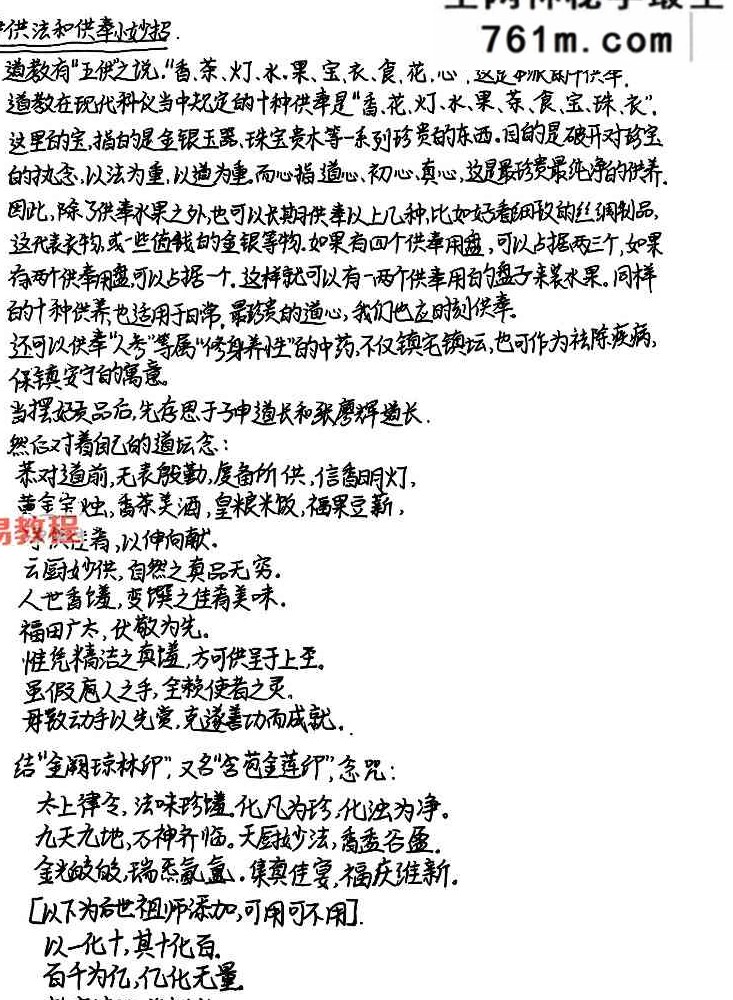 761m.com
供法和供奉小妙招.
道教有“五供”之说.“香.茶.灯.水.果.宝.衣.食.花.心”,这是
道教在现代科仪当中规定的十种供奉是“香.花.灯.水.果.茶.食.宝.珠.衣”.
这里的宝,指的是金银玉器、珠宝贵木等一系列珍贵的东西.目的是破开对珍宝
的执念,以法为重,以道为重.而心指道心、初心、真心,这是最珍贵最纯净的供养.
因此,除了供奉水果之外,也可以长期供奉以上几种,比如好看细致的丝绸制品,
这代表衣物,或一些值钱的金银等物.如果有四个供奉用盘,可以占据两三个,如果
有两个供奉用盘,可以占据一个.这样就可以有一两个供奉用的盘子来装水果。同样
的十种供养,也适用于日常.最珍贵的道心,我们也应时刻供奉。
还可以供奉“人参”等属“修身养性”的中药,不仅镇宅镇坛,也可作为祛除疾病,
保镇安宁的寓意。
当摆好贡品后,先存思于子申道长和张廖辉道长.
然后对着自己的道坛念:
恭对道前,无表殷勤,虔备所供,信香明灯,
黄金宝烛,香茶美酒,皇粮米饭,福果豆蔌,
易教程
供佳肴,以伸向献.
云厨妙供,自然之真品无穷.
人世香馐,变馔之佳肴美味.
福田广大,伏敬为先。
惟凭精洁之真馐,方可供呈于上圣。
虽假庖人之手,全赖使者之灵。
毋敢动手以先尝,克遂善功而成就.
结“金阙琼林印”,又名“含苞金莲印”,念咒:
太上律令,法味珍馐.化凡为珍,化浊为净。
九天九地,万神齐临。天厨妙法,香盉谷盈.
金光皎皎,瑞炁氤氲.集真佳宴,福庆维新.
[以下为后世祖师添加,可用可不用].
以一化十,其十化百.
百千为亿,亿化无量.